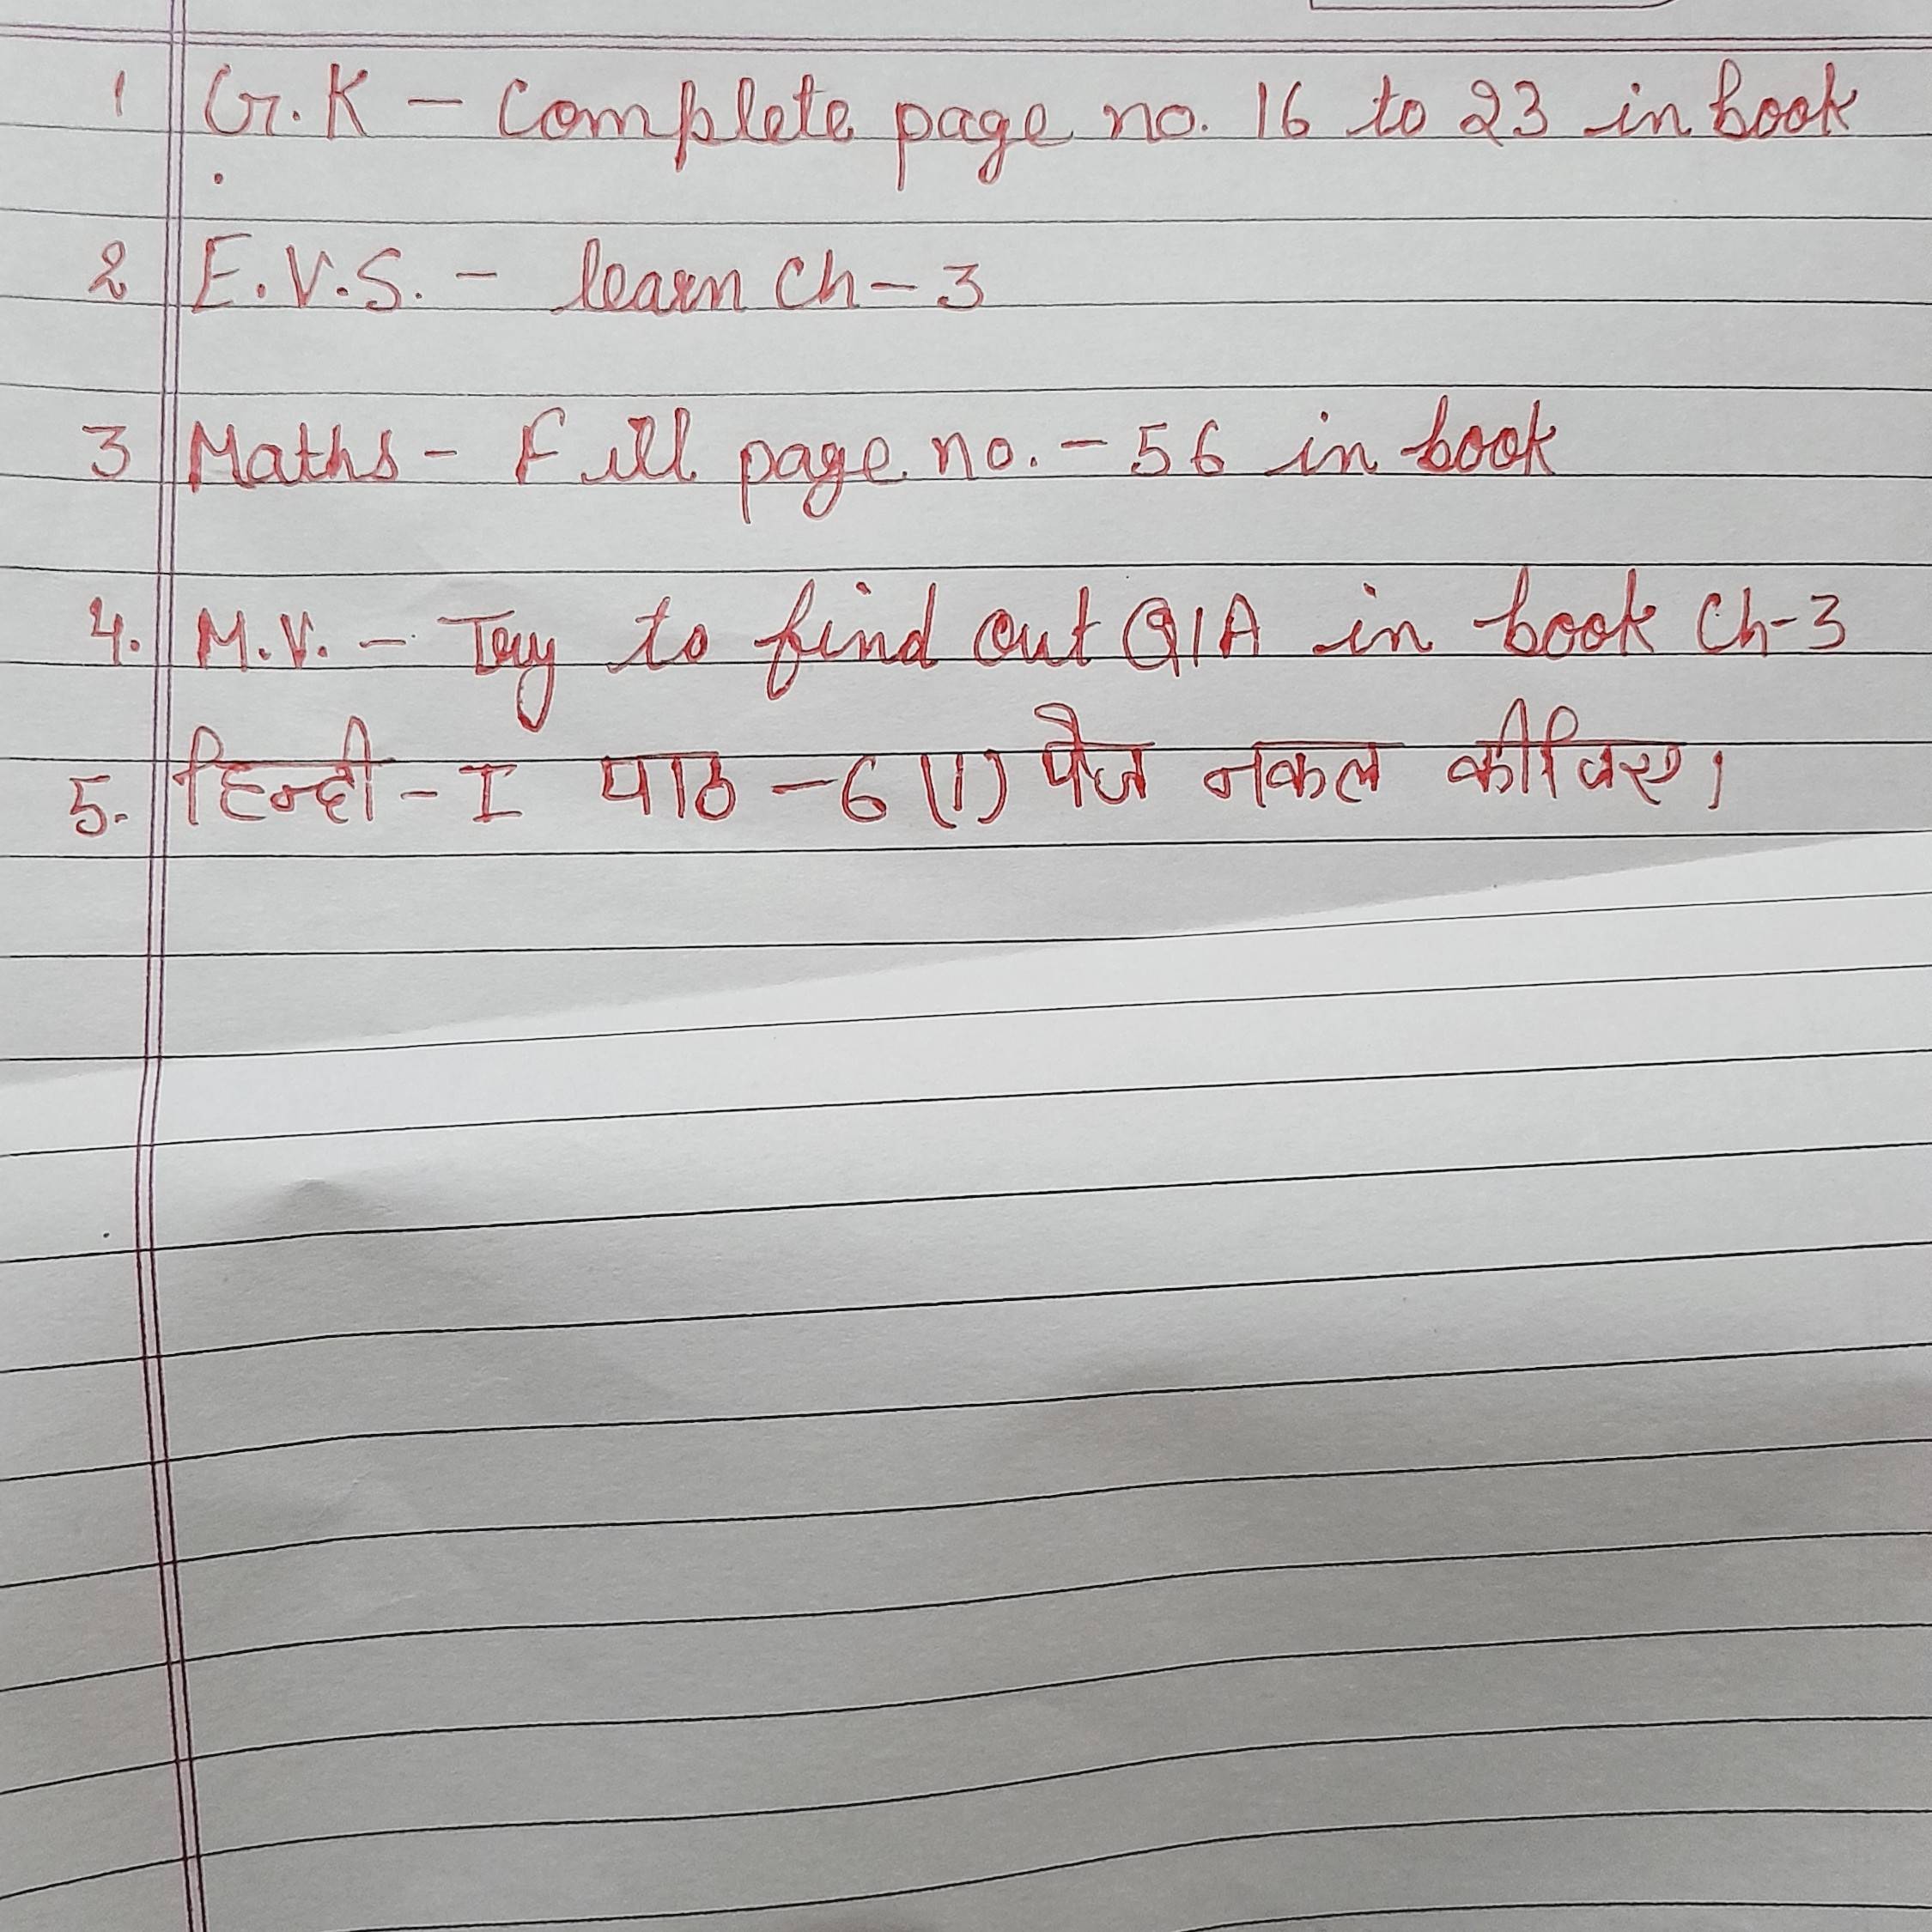 1 G.K - Complete page no. 16 to 23 in book
2 E.V.S. - learn Ch-3
3 Maths - Fill page no. - 56 in book
4. M.V. - Try to find out Q/A in book Ch-3
5. हिन्दी - I पाठ - 6 (1) पेज नकल कीजिए।